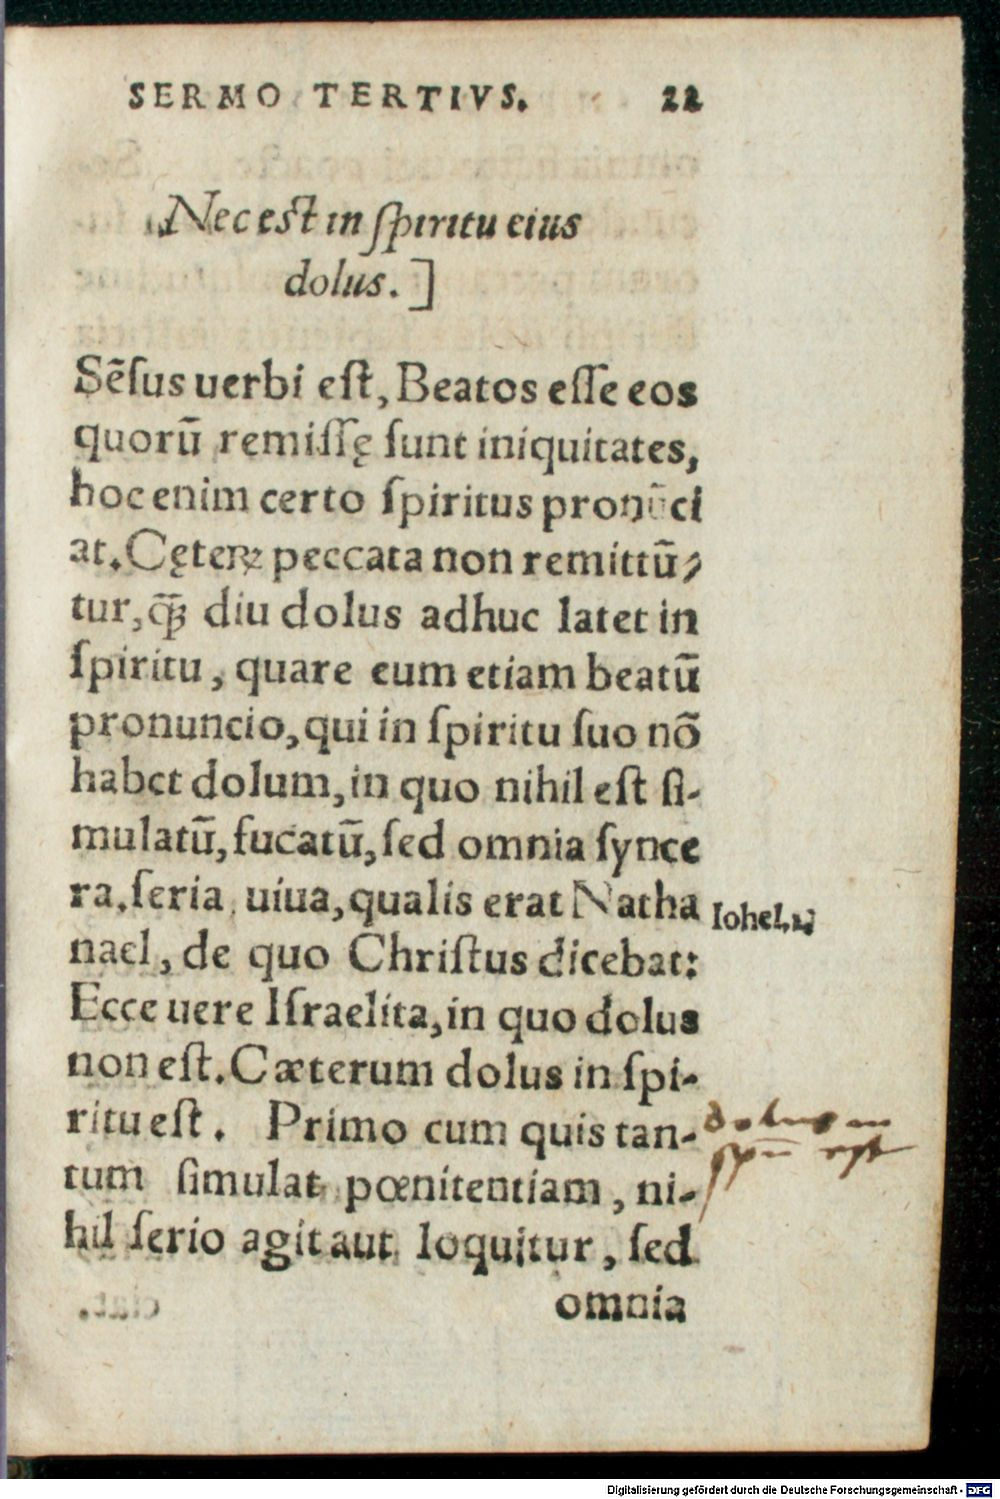 SERMO TERTIVS. 22
Nec est in ſpiritu eius
dolus. ]
Sēſus uerbi eſt, Beatos eſſe eos
quorū remiſſę ſunt iniquitates,
hoc enim certo ſpiritus pronūci
at. Cęterꝝ peccata non remittū⸗
tur, ꝙ̄ diu dolus adhuc latet in
ſpiritu, quare eum etiam beatū
pronuncio, qui in ſpiritu ſuo nō
habet dolum, in quo nihil eſt ſi-
mulatū, fucatū, ſed omnia ſynce
ra, ſeria, uiua, qualis erat Natha
Iohel.1.
nael, de quo Chriſtus dicebat:
Ecce uere Iſraelita, in quo dolus
non eſt. Cæterum dolus in ſpi-
ritu eſt. Primo cum quis tan-
dolus in
spū est
tum ſimulat pœnitentiam, ni-
hil ſerio agit aut loquitur, ſed
omnia
Digitalisierung gefördert durch die Deutsche Forschungsgemeinschaft - DFG